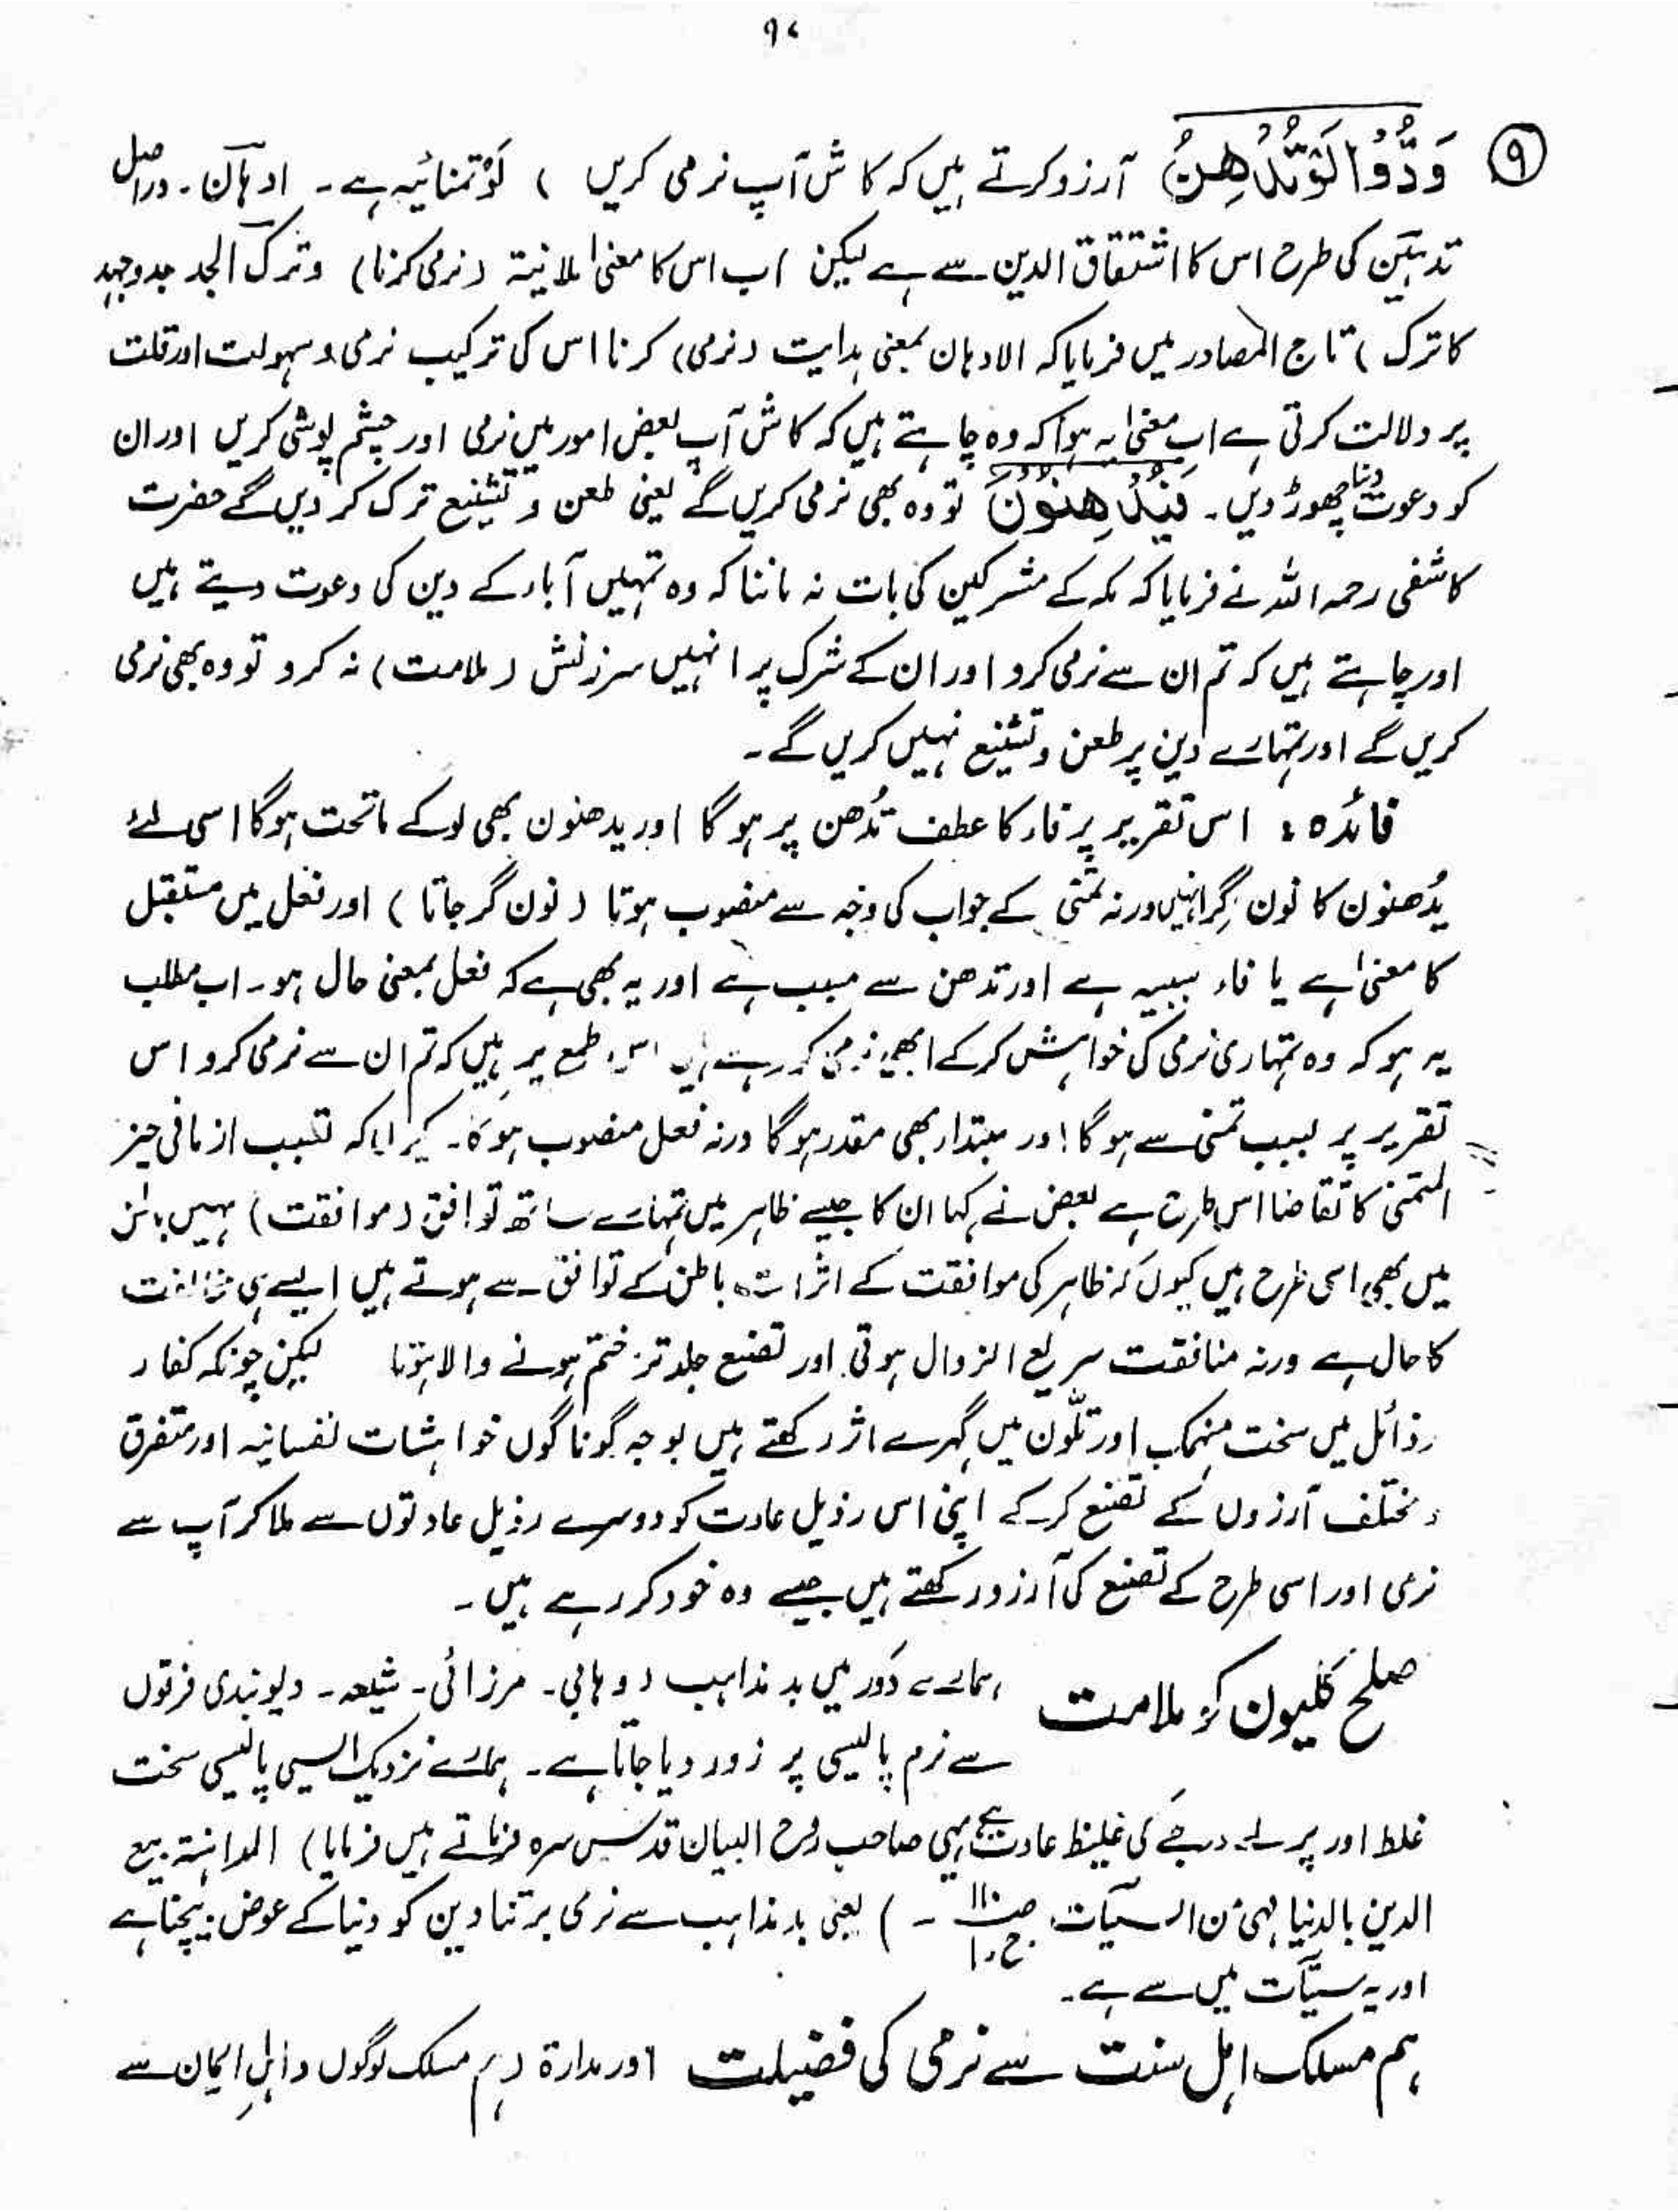 ۹۷
۹ وَدُّوْا لَوْ تُدْهِنُ آرزو کرتے ہیں کہ کاش آپ نرمی کریں ) لَوْ تمنائیہ ہے۔ ادہان۔ دراصل
تدہین کی طرح اس کا اشتقاق الدین سے ہے لیکن (اب اس کا معنیٰ ملانیۃ (نرمی کرنا) وترک الجد جدوجہد
کا ترک ) تاج المصادر میں فرمایا کہ الادہان بمعنی ہدایت (نرمی) کرنا اس کی ترکیب نرمی و سہولت اور قلت
پر دلالت کرتی ہے اب معنیٰ یہ ہوا کہ وہ چاہتے ہیں کہ کاش آپ بعض امور میں نرمی اور چشم پوشی کریں اور ان
کو دعوت دینا چھوڑ دیں۔ فَيُدْهِنُوْنَ تو وہ بھی نرمی کریں گے یعنی طعن و تشنیع ترک کر دیں گے حضرت
کاشفی رحمہ اللہ نے فرمایا کہ مکہ کے مشرکین کی بات نہ ماننا کہ وہ تمہیں آباء کے دین کی دعوت دیتے ہیں
اور چاہتے ہیں کہ تم ان سے نرمی کرو اور ان کے شرک پر انہیں سرزنش (ملامت) نہ کرو تو وہ بھی نرمی
کریں گے اور تمہارے دین پر طعن و تشنیع نہیں کریں گے۔
فائدہ : اس تقریر پر فاء کا عطف تُدھن پر ہو گا اور یدھنون بھی لو کے ماتحت ہو گا اسی لئے
یُدھنون کا نون گرا نہیں ورنہ تمنّی کے جواب کی وجہ سے منصوب ہوتا (نون گر جاتا) اور فعل میں مستقبل
کا معنیٰ ہے یا فاء سببیہ ہے اور تدھن سے مسبب ہے اور یہ بھی ہے کہ فعل بمعنی حال ہو۔ اب مطلب
یہ ہو کہ وہ تمہاری نرمی کی خواہش کرکے ابھی نرمی کر رہے ہیں اس طمع پر ہیں کہ تم ان سے نرمی کرو اس
تقریر پر بسبب تمنّی سے ہو گا اور مبتداء بھی مقدر ہو گا ورنہ فعل منصوب ہو گا۔ کہ تسبب از مافی حیز
المتمنی کا تقاضا اس طرح ہے بعض نے کہا ان کا جیسے ظاہر میں تمہارے ساتھ توافق (موافقت) نہیں باطن
میں بھی اسی طرح ہیں کیوں کہ ظاہر کی موافقت کے اثرات باطن کے توافق سے ہوتے ہیں ایسے ہی مخالفت
کا حال ہے ورنہ منافقت سریع الزوال ہوتی اور تصنع جلد تر ختم ہونے والا ہوتا لیکن چونکہ کفار
رذائل میں سخت منہمک اور تلّون میں گہرے اثر رکھتے ہیں بوجہ گوناگوں خواہشات نفسانیہ اور متفرق
و مختلف آرزوں کے تصنع کر کے اپنی اس رذیل عادت کو دوسرے رذیل عادتوں سے ملا کر آپ سے
نرمی اور اسی طرح کے تصنع کی آرزو رکھتے ہیں جیسے وہ خود کر رہے ہیں۔
صلح کلیون کو ملامت ہمارے دَور میں بد مذاہب (وہابی۔ مرزائی۔ شیعہ۔ دیوبندی فرقوں
سے نرم پالیسی پر زور دیا جاتا ہے۔ ہمارے نزدیک ایسی پالیسی سخت
غلط اور پرلے درجے کی غلیظ عادت ہے یہی صاحب روح البیان قدس سرہ فرماتے ہیں فرمایا) المداہنۃ بیع
الدین بالدنیا فہی من السیآت صـ۱۱۰ ج ۱۰ ـ ) یعنی بد مذاہب سے نرمی برتنا دین کو دنیا کے عوض بیچنا ہے
اور یہ سیّآت میں سے ہے۔
ہم مسلک اہل سنت سے نرمی کی فضیلت اور مدارۃ (ہم مسلک لوگوں و اہلِ ایمان سے